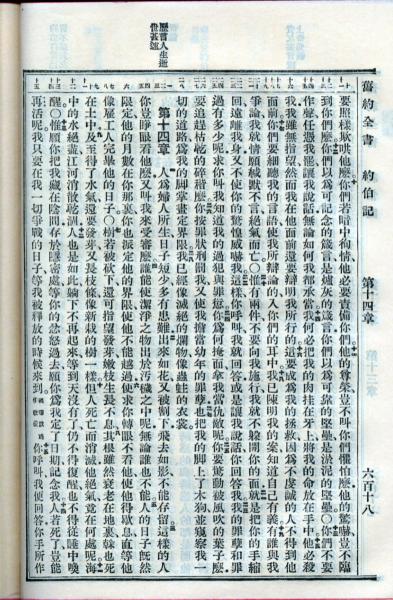 舊約全書 約伯記 第十四章 六百十八
要照樣欺哄他麼你們若暗中徇情他必要責備你們他的尊榮豈不叫你們懼怕麼他的驚嚇豈不臨
到你們麼你們以為可記念的箴言是爐灰的箴言你們以為可靠的堅壘是淤泥的堅壘〇你們不要
作聲任憑我罷讓我說話無論如何我都承當我何必把我的肉挂在牙上將我的命放在手中他必殺
我我雖無指望然而我在他面前還要辯明我所行的這要為我的拯救因為不虔誠的人不得到他
面前你們要細聽我的言語使我所辯論的入你們的耳中我已陳明我的案知道自己有義有誰與我
爭論我就情願緘默不言氣絕而亡〇惟有兩件不要向我施行我就不躲開你的面就是把你的手縮
回遠離我身又不使你的驚惶威嚇我這樣你呼叫我就回答或是讓我說話你回答我我的罪孽和罪
過有多少呢求你叫我知道我的過犯與罪愆你為何掩面拿我當仇敵呢你要驚動被風吹的葉子麼
要追趕枯乾的碎稭麼你按罪狀刑罰我又使我擔當幼年的罪孽也把我的脚上了木狗並窺察我一
切的道路為我的脚掌畫定界限我已經像滅絕的爛物像蟲蛀的衣裳
第十四章 人為婦人所生日子短少多有患難出來如花又被割下飛去如影不能存留這樣的人
你豈睜眼看他麼又叫我來受審麼誰能使潔淨之物出於污穢之中呢無論誰也不能人的日子既然
限定他的月數在你那裏你也派定他的界限使他不能越過便求你轉眼不看他使他得歇息直等他
像雇工人完畢他的日子〇樹若被砍下還可指望發芽嫩枝生長不息其根雖然衰老在地裏榦也死
在土中及至得了水氣還要發芽又長枝條像新栽的樹一樣但人死亡而消滅他氣絕竟在何處呢海
中的水絕盡江河消散乾涸人也是如此躺下不再起來等到天沒有了仍不得復醒也不得從睡中喚
醒〇惟願你把我藏在陰間存於隱密處等你的忿怒過去願你為我定了日期記念我人若死了豈能
再活呢我只要在我一切爭戰的日子等我被釋放的時候來到你呼叫我便回答你手所作